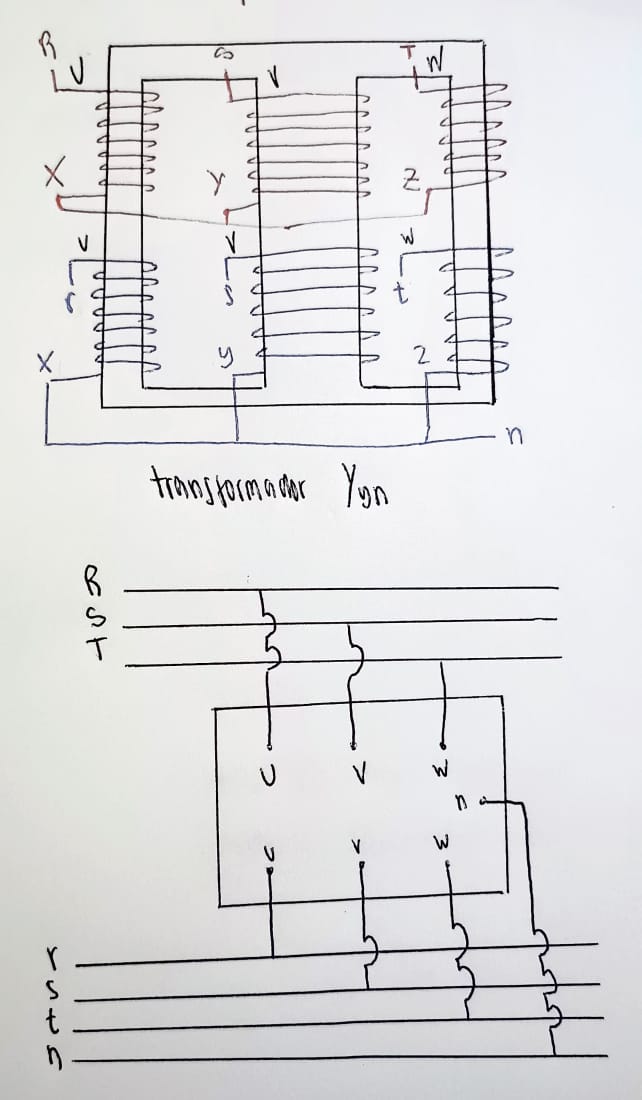 R U S V T W
X Y Z
v V w
r s t
X y z
n
transformador Yyn
R
S
T
U V W
n
u v w
r
s
t
n